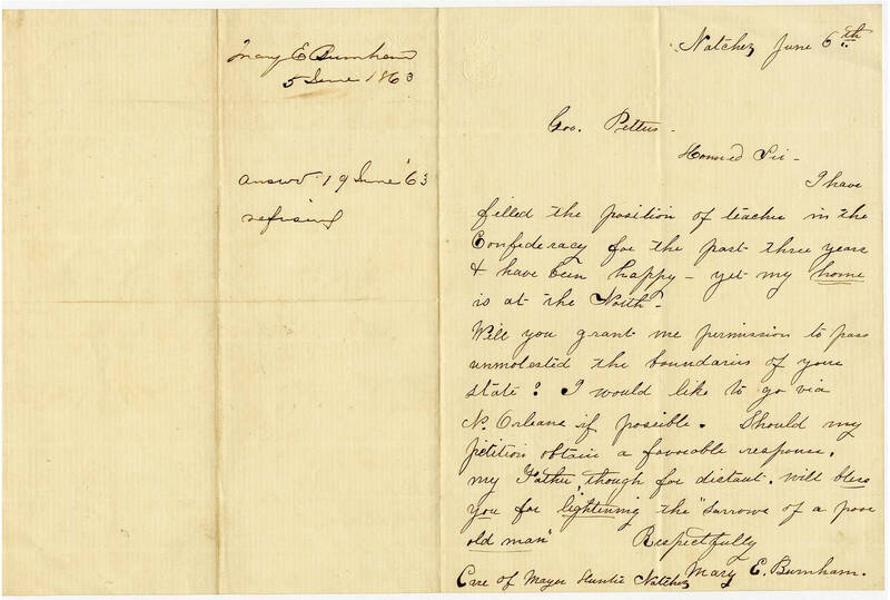 Mary E Burnham
5 June 1863
answd 19 June '63
refusing
Natchez June 6th.
Gov. Pettus -
Honred Sir -
I have
filled the position of teacher in the
Confederacy for the past three years
& have been happy - yet my home
is at the North -
Will you grant me permission to pass
unmolested the boundaries of your
state? I would like to go via
N. Orleans if possible. Should my
petition obtain a favorable response,
my Father, though far distant, will bless
you for lightening the "sorrows of a poor
old man"
Respectfully
Mary E. Burnham.
Care of Mayor Hunter Natchez